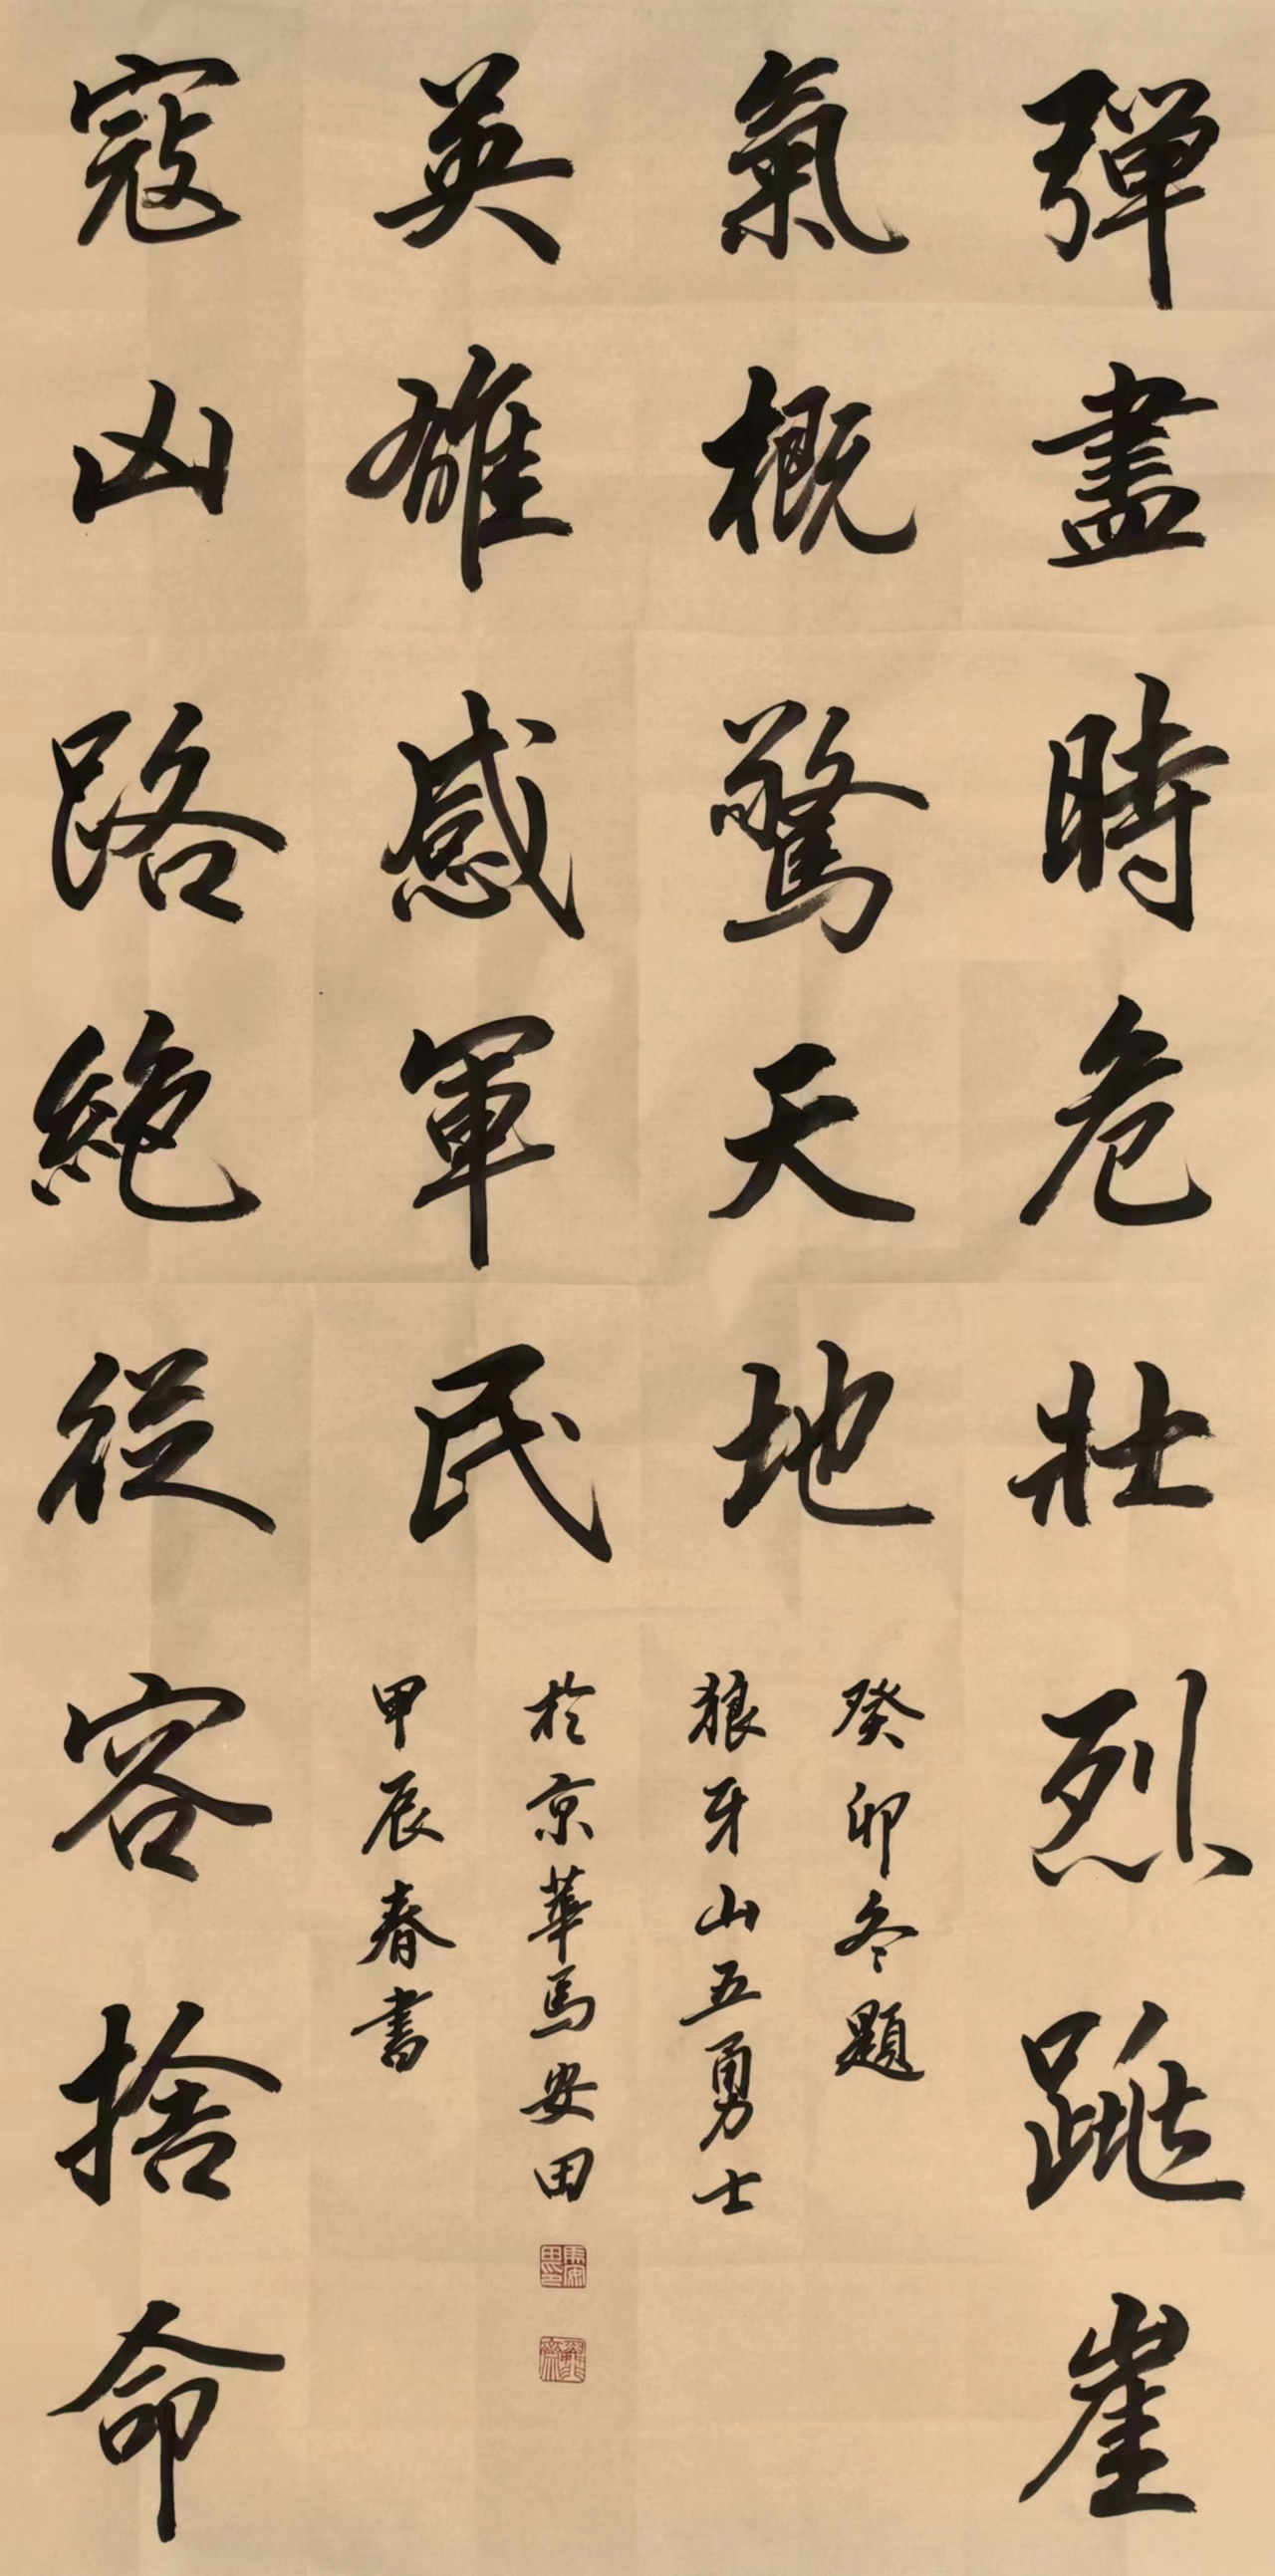 彈盡時危壯烈跳崖
氣概驚天地
癸卯冬題
狼牙山五勇士
寇凶路絕從容捨命
英雄感軍民
於京華馬安田
甲辰春書
馬安田印